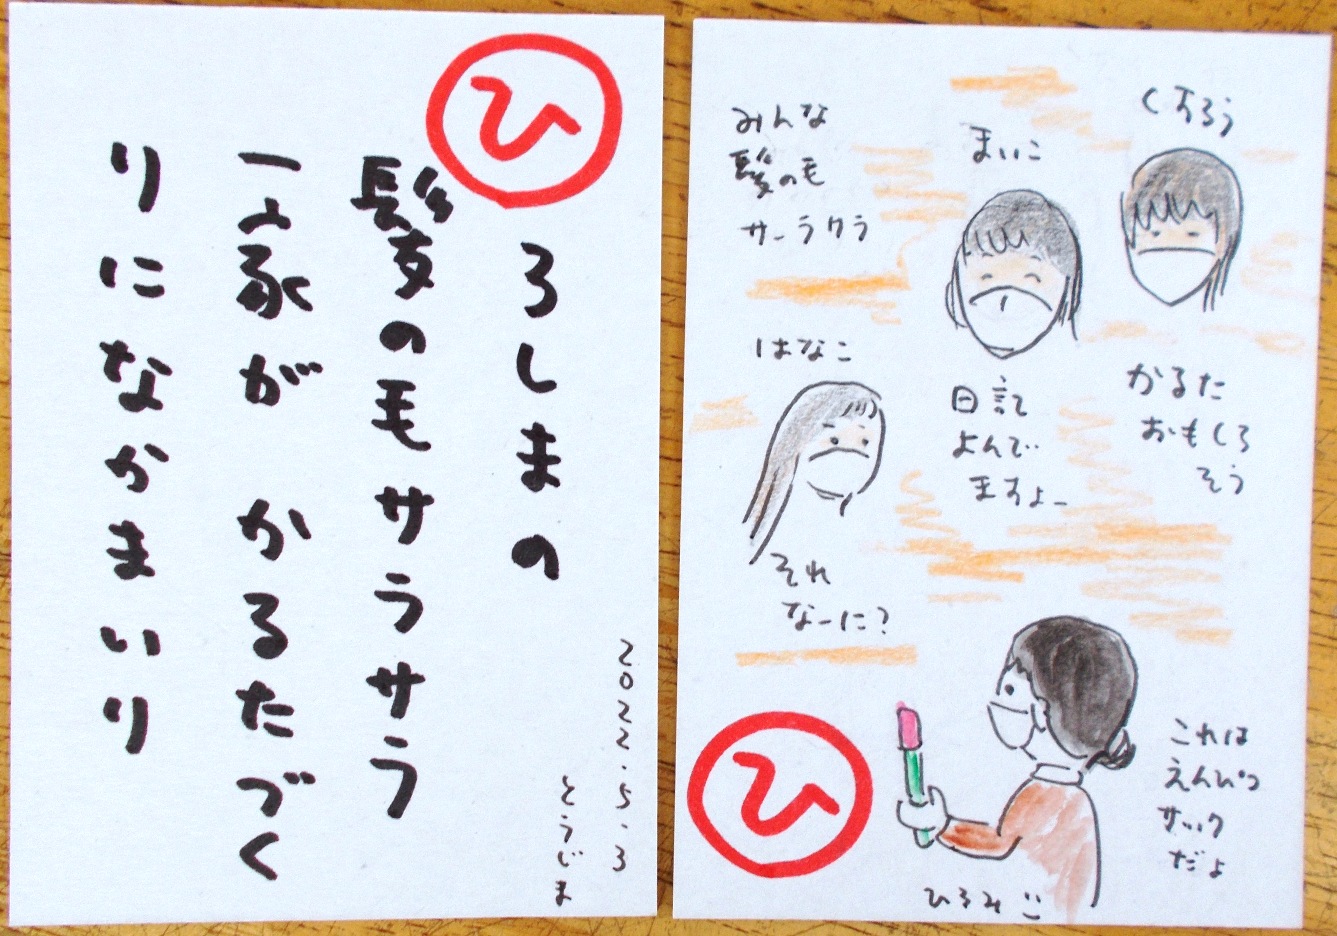 ひろしまの
髪の毛サラサラ
一家が かるたづく
りになかまいり
2022.5.3
とうじま
みんな
髪の毛
サーラサラ
まいこ
くすろう
はなこ
日記
よんで
ますよー
かるた
おもしろ
そう
それ
なーに?
ひ
これは
えんぴつ
サック
だよ
ひろみこ